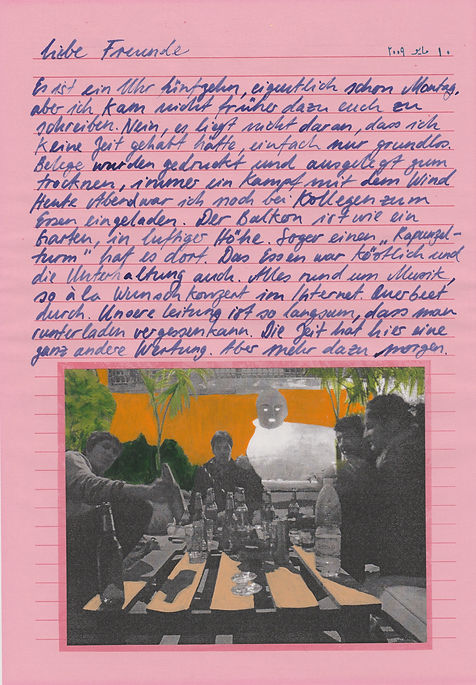 Liebe Freunde
١٠ مايو ٢٠٠٩
Es ist ein Uhr fünfzehn, eigentlich schon Montag,
aber ich kam nicht früher dazu euch zu
schreiben. Nein, es liegt nicht daran, dass ich
keine Zeit gehabt hätte, einfach nur grundlos.
Belege wurden gedruckt und ausgelegt zum
trocknen, immer ein Kampf mit dem Wind
Heute Abend war ich noch bei Kollegen zum
Essen eingeladen. Der Balkon ist wie ein
Garten, in luftiger Höhe. Sogar einen „Rapunzel-
turm" hat es dort. Das Essen war köstlich und
die Unterhaltung auch. Alles rund um Musik,
so à la Wunschkonzert im Internet. Querbeet
durch. Unsere Leitung ist so langsam, dass man
runterladen vergessen kann. Die Zeit hat hier eine
ganz andere Wertung. Aber mehr dazu morgen.